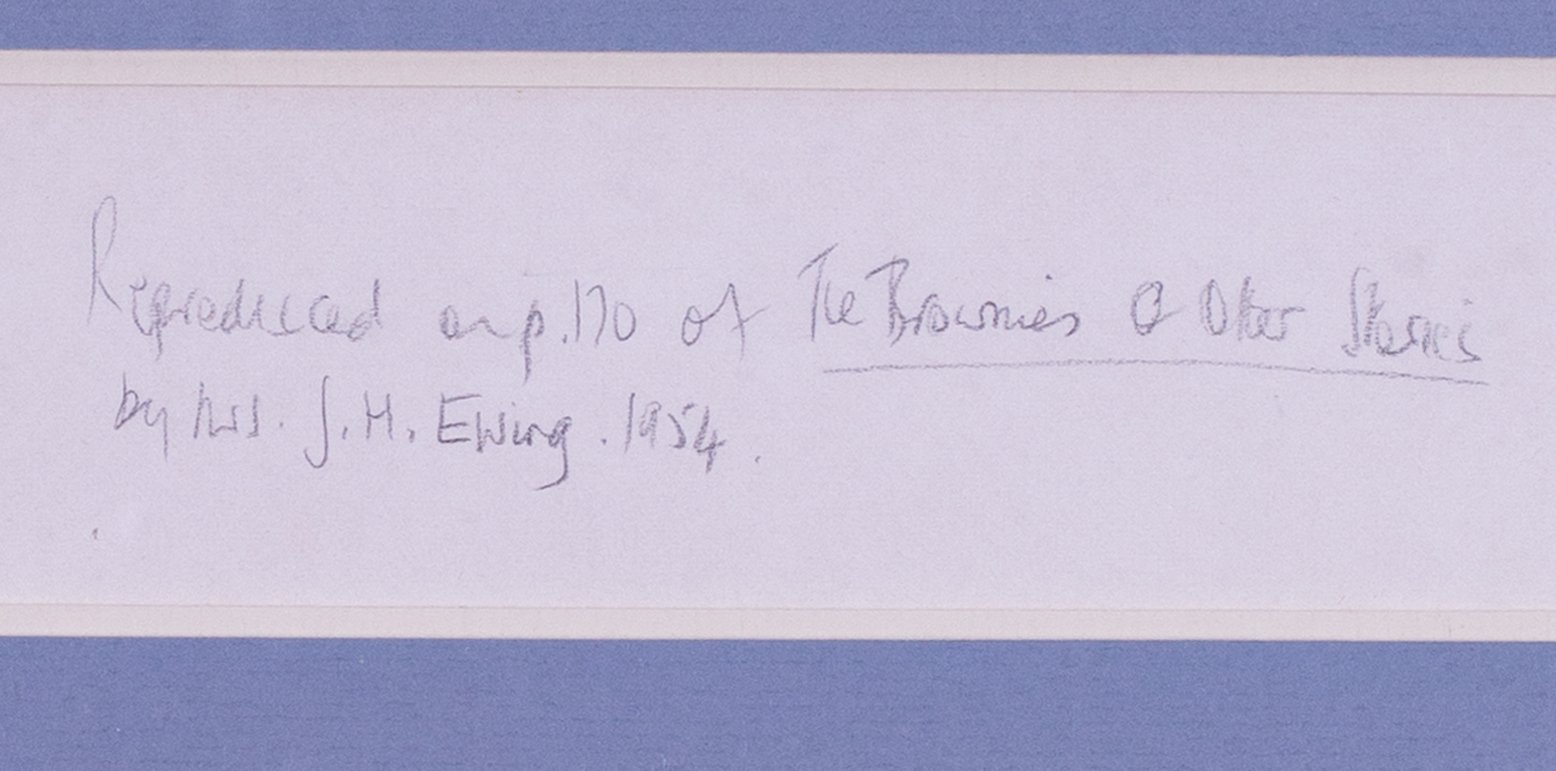 Reproduced on p.170 of The Brownies & Other Stories
by Mrs. J.H. Ewing. 1954.